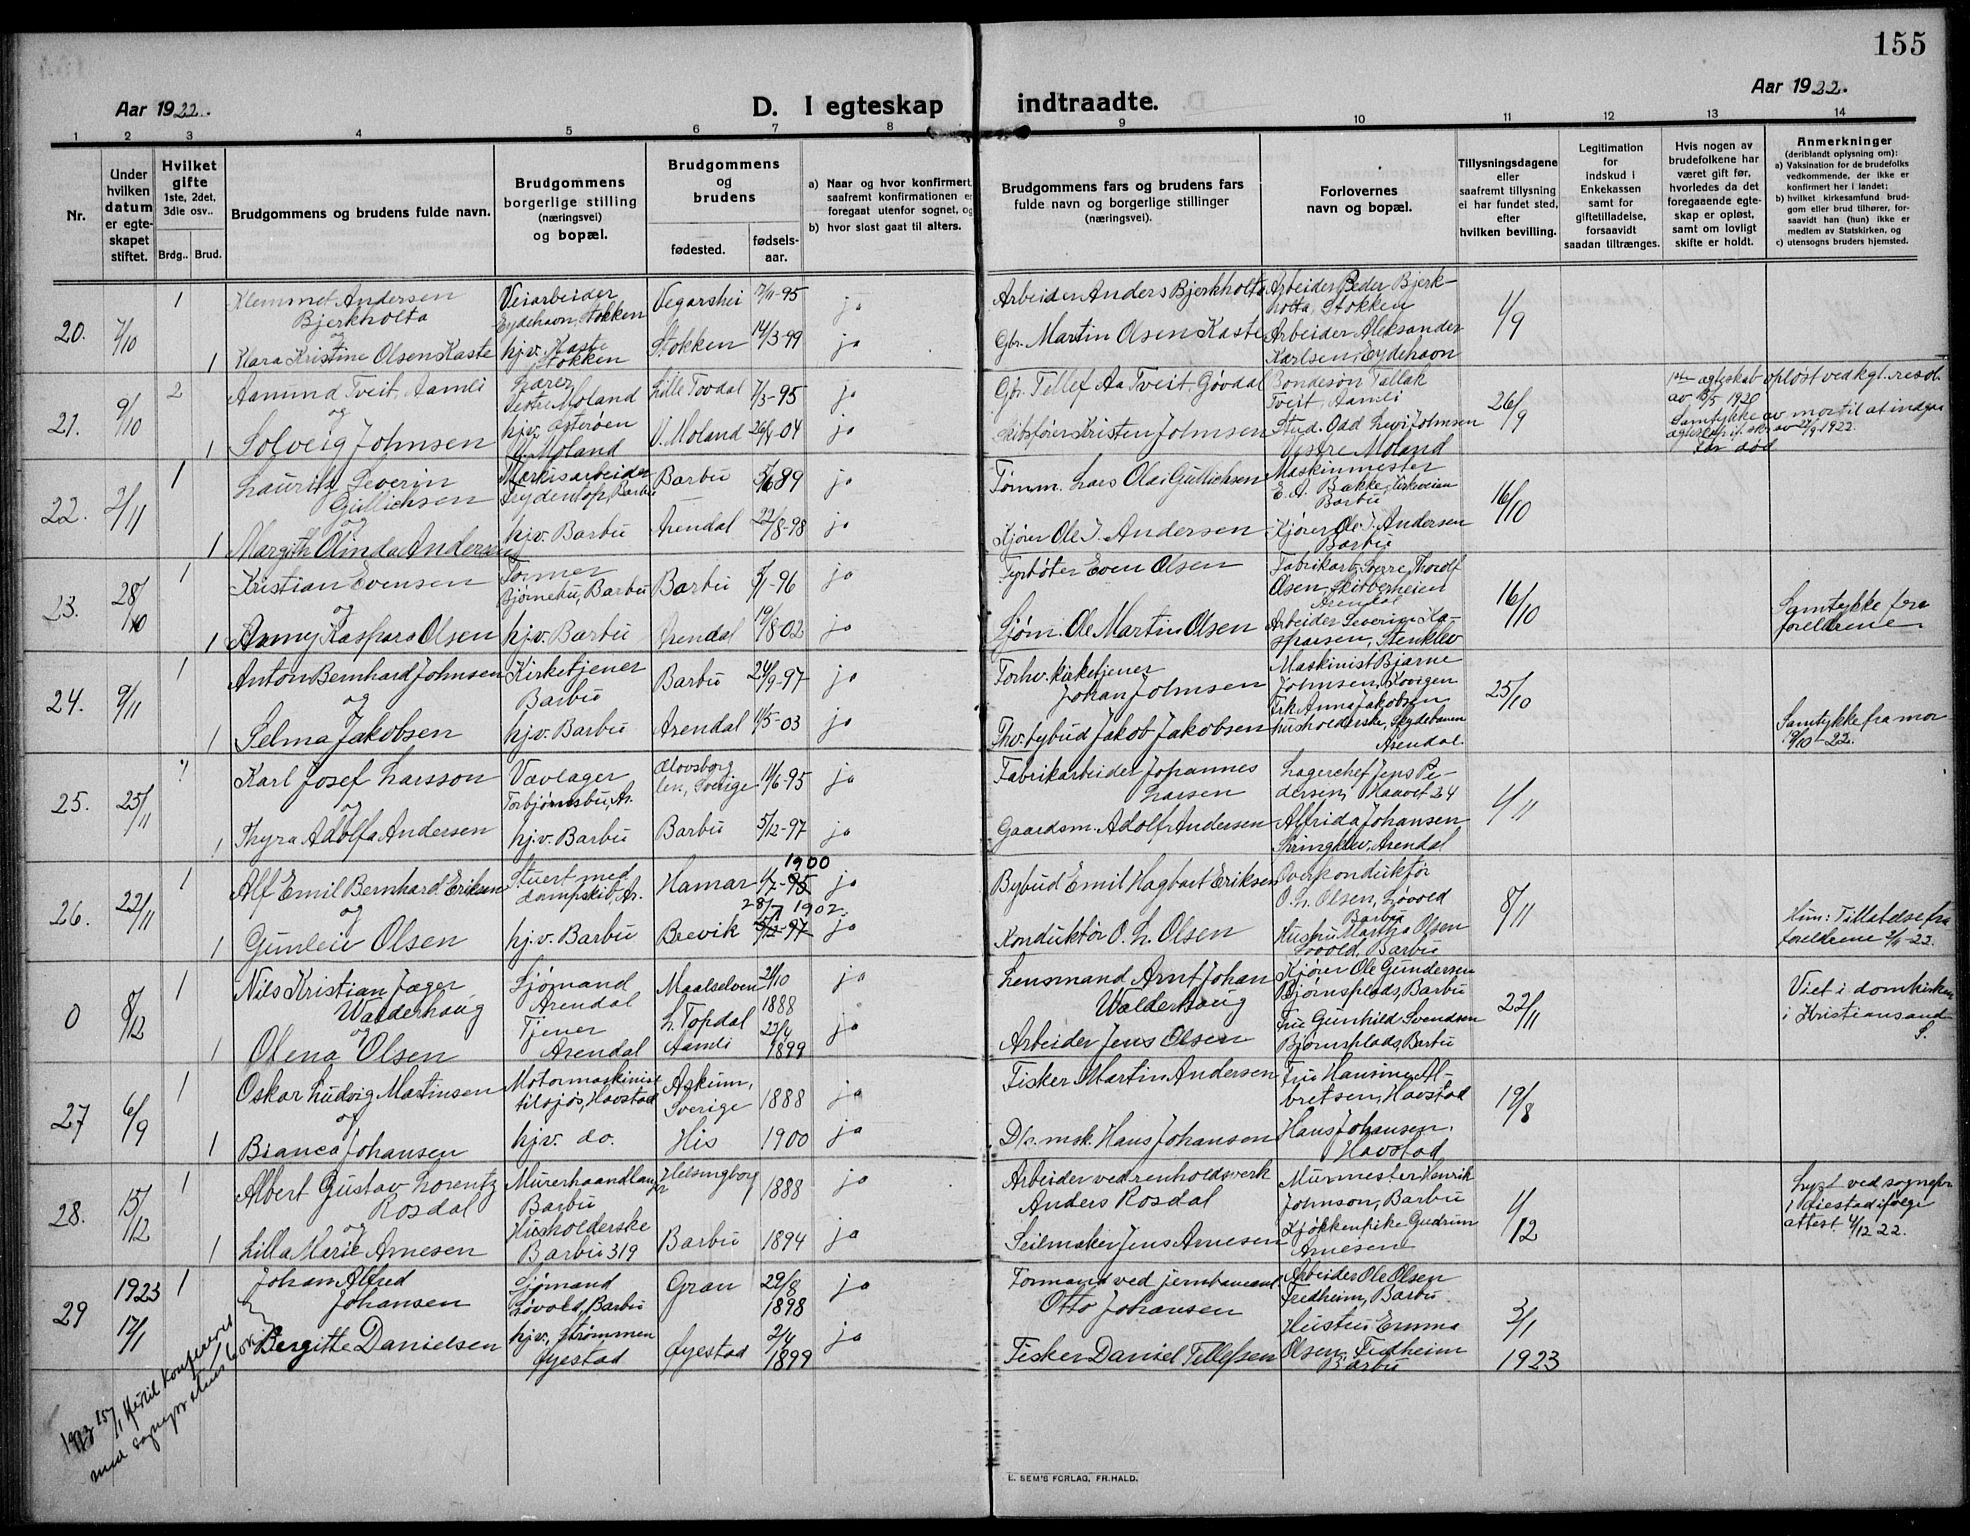 155
Aar 1922.
D. I egteskap indtraadte.
Aar 1922.
1 2 3 4 5 6 7 8 9 10 11 12 13 14
Nr.
Under hvilken datum er egteskapet stiftet.
Hvilket gifte 1ste, 2det, 3die osv..
Brdg.. Brud.
Brudgommens og brudens fulde navn.
Brudgommens borgerlige stilling (næringsvei) og bopæl.
Brudgommens og brudens
fødested. fødsels-aar.
a) Naar og hvor konfirmert, saafremt konfirmationen er foregaat utenfor sognet, og
b) hvor sidst gaat til alters.
Brudgommens fars og brudens fars fulde navn og borgerlige stillinger (næringsvei).
Forlovernes navn og bopæl.
Tillysningsdagene eller saafremt tillysning ei har fundet sted, efter hvilken bevilling.
Legitimation for indskud i Enkekassen samt for giftetilladelse, forsaavidt saadan tiltrænges.
Hvis nogen av brudefolkene har været gift før, hvorledes da det foregaaende egteskap er opløst, samt om lovligt skifte er holdt.
Anmerkninger
(deriblandt oplysning om):
a) Vaksination for de brudefolks vedkommende, der ikke er konfirmert her i landet;
b) hvilket kirkesamfund brudgom eller brud tilhører, forsaavidt han (hun) ikke er medlem av Statskirken, og
c) utensogns bruders hjemsted.
20. 7/10 1 Klemmet Andersen Bjerkholta Veiarbeider Eydehavn, Stokken Vegarshei 7/11-95 ja Arbeider Anders Bjerkholta Arbeider Peder Bjerkholta, Stokken 1/9
og
1 Klara Kristine Olsen Kaste hjv. Kaste Stokken Stokken 14/3-99 ja Gbr. Martin Olsen Kaste Arbeider Aleksander Karlsen, Eydehavn
21. 9/10 2 Aamund Tveit, Aamli Lærer Vestre Moland Lille Tovdal 7/3-95 ja Gbr. Tellef Aa Tveit, Gjøvdal Bondesøn Tallak Tveit, Aamli 26/9 1ste egteskab opløst ved kgl. resol. av 13/5 1920
og
1 Solveig Johnsen hjv. Østerøen V. Moland V. Moland 26/4-04 ja Skibsfører Kristen Johnsen Stud. Odd Levi Johnsen Vestre Moland Samtykke av mor til at indgaa egteskap if. skr. av 27/9 1922. Far død
22. 2/11 1 Lauritz Severin Gullichsen Barbu 89 ja Tømm. Lars Olai Gullichsen Maskinmester E. A. Bakke, Kirkeveien Barbu 16/10
og
1 Margith Olinda Andersen hjv. Barbu Arendal 22/8-98 ja Kjører Ole J. Andersen Kjører Ole J. Andersen Barbu
23. 28/10 1 Kristian Evensen Former Bjørnebu, Barbu Barbu -96 ja Fyrbøter Even Olsen Olsen, Arendal 16/10
og
1 Anny Kaspara Olsen hjv. Barbu Arendal 19/8 02 ja Sjøm. Ole Martin Olsen Arbeider Severin Kaspersen, Stenklev Samtykke fra foreldrene
24. 9/11 1 Anton Bernhard Johnsen Kirketjener Barbu Barbu 24/9-97 ja Forhv. kirketjener Johan Johnsen Maskinist Bjarne Johnsen, Kovigen 25/10
og
1 Selma Jakobsen hjv. Barbu Arendal 11/5-03 ja Jakob Jakobsen Frk Anna Jakobsen husholderske, Skydebanen Arendal Samtykke fra mor 9/10-22.
25. 25/11 1 Karl Josef Larsson Vævlager Torbjørnsbu, Ar. Elovsborg len, Sverige 11/6-95 ja Fabrikarbeider Johannes Larsen Lagerchef Jens Pedersen, Haavet 34 4/11
og
1 Thyra Adolfa Andersen hjv. Barbu Barbu 5/12-97 ja Gaardsm. Adolf Andersen Alfrida Johansen Arendal
26. 22/11 1 Alf Emil Bernhard Eriksen Stuert med dampskib, Ar. Hamar 4/7-95 1900 ja Bybud Emil Hagbart Eriksen Overkonduktør O. L. Olsen, Løvold Barbu 8/11
og
1 Gunleiv Olsen hjv. Barbu Brevik 28/7 1902 5/12-97 ja Konduktør O. L. Olsen Hustru Martha Olsen Løvold, Barbu Hun: Tilladelse fra foreldrene 2/11-22.
0 8/12 1 Nils Kristian Jæger Walderhaug Sjømand Arendal Maalselven 21/10 1888 ja Lensmand Arnt Johan Walderhaug Kjører Ole Gundersen Bjørnsplads, Barbu 22/11 Viet i domkirken i Kristiansand S.
og
1 Olena Olsen Tjener Arendal L. Topdal Aamli 22/4 1899 ja Arbeider Jens Olsen Fru Gunhild Svendsen Bjørnsplads, Barbu
27 6/9 1 Oskar Ludvig Martinsen Motormaskinist tilsjøs, Havstad Askum, Sverige 1888 ja Fisker Martin Andersen Fru Hansine Albretsen, Havstad 19/8
og
1 Bianca Johansen hjv. do. His 1900 ja D/s. msk. Hans Johansen Hans Johansen, Havstad
28. 15/12 1 Albert Gustav Lorentz Rosdal Murerhaandlanger Barbu Helsingborg 1888 ja Arbeider ved renholdsverk Anders Rosdal Murmester Henrik Johnson, Barbu 4/12 Lyst ved sognepr. i Øiestad ifølge attest 4/12 22.
og
1 Lilla Marie Arnesen Husholderske Barbu 319 Barbu 1894 ja Seilmaker Jens Arnesen Kjøkkenpike Gudrun Arnesen
29 1923 12/1 1 Johan Alfred Johansen Sjømand Løvold, Barbu Gran 29/8 1898 ja Formand ved jernbaneanl. Otto Johansen Arbeider Ole Olsen Fredheim, Barbu 3/1 1923
1 Bergitte Danielsen hjv., Strømmen Øyestad Øyestad 2/4 1899 ja Fisker Daniel Tellefsen Hustru Emma Olsen, Fredheim Barbu
1923 15/1 Hertil konfereret med sogneprestens bok
E. SEM'S FORLAG, FR.HALD.